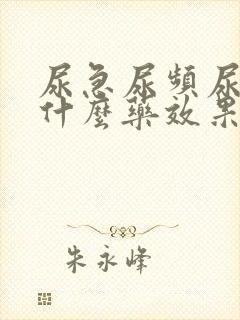 尿急尿頻尿
什麼藥效果
朱永峰